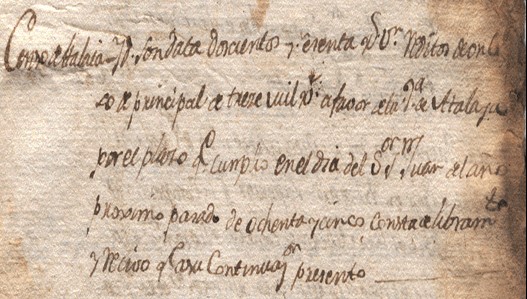 Censo de Atalaia Yt. son data doscientos y treinta Rs. Vn. Reditos de un
so de principal de treze mil Rs. a favor de la Ygª de Atalaya
por el plazo q. cumplio en el dia del Sor. Sn. Juan del año
proximo pasado de ochenta y cinco consta de libramto
y Recivo q. a su Continuazon presento